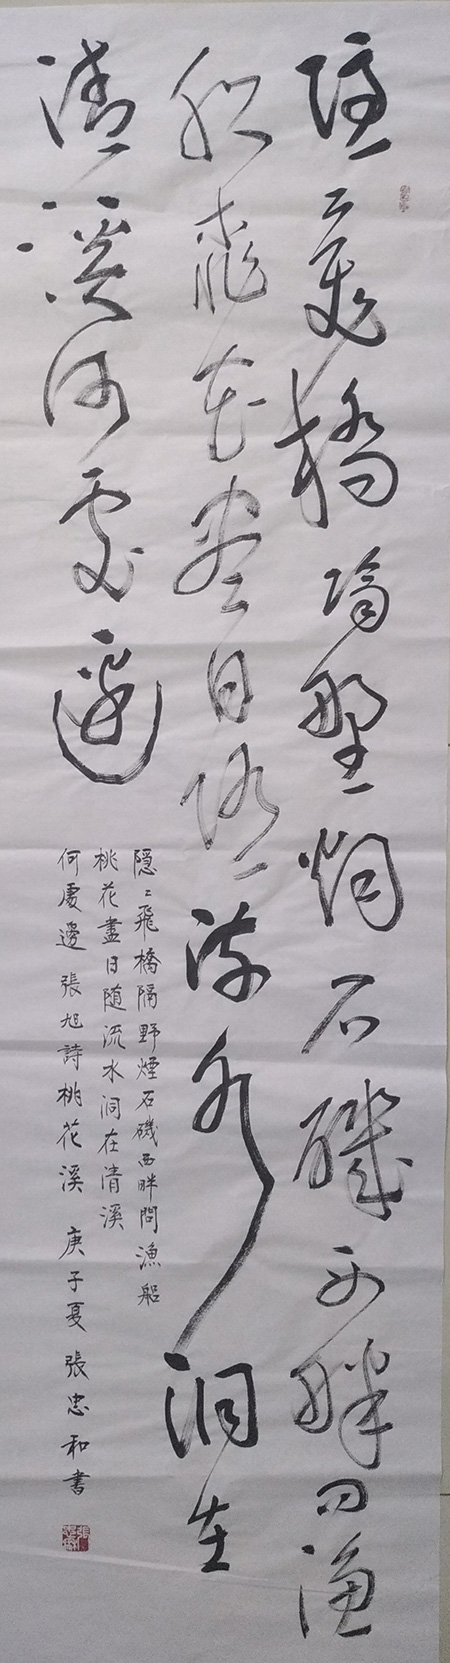 隱〻飛橋隔野煙石磯西畔問漁
船桃花盡日随流水洞在
清溪何處邊
隱〻飛橋隔野煙石磯西畔問漁船
桃花盡日随流水洞在清溪
何處邊 張旭詩桃花溪 庚子夏 張忠和書